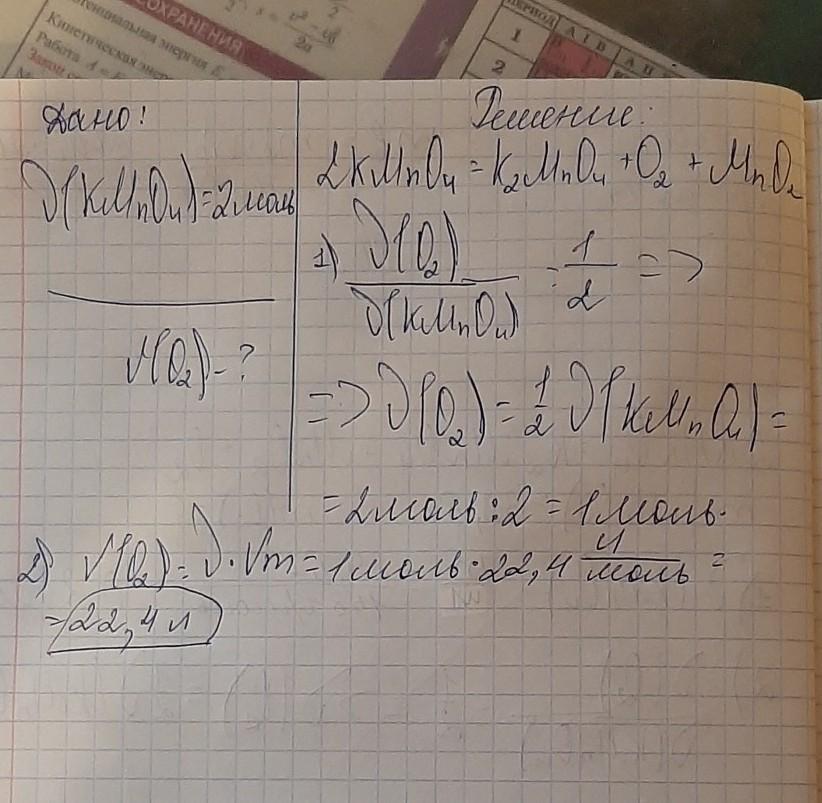 СОХРАНЕНИЯ
Кинетическая
Работа
Закон
ПЕРИОД
A I B
A II
1
2
Дано:
ν(KMnO4)=2моль
V(O2)-?
Решение:
2KMnO4=K2MnO4+O2+MnO2
1) ν(O2)/ν(KMnO4) = 1/2 =>
=> ν(O2)=1/2 ν(KMnO4)=
=2моль:2=1моль.
2) V(O2)=ν·Vm=1моль·22,4 л/моль=
=22,4 л